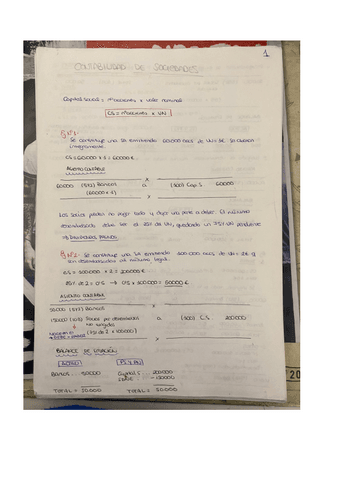 1
CONTABILIDAD DE SOCIEDADES
Capital Social = nº acciones x valor nominal
CS = nº acciones x VN
Ej Nº1:
Se constituye una SA emitiendo 60.000 acc de VN = 1€. Se
íntegramente.
CS = 60.000 x 1 = 60.000 €
ASIENTO CONTABLE
x
60000 (572) Bancos a (100) Cap. S 60000
(60000 x 1)
x
Los socios pueden no pagar todo y dejar una parte a deber. El mínimo
desembolsado debe ser el 25% del VN, quedando un 75% VN pendiente
DIVIDENDOS PASIVOS
Ej Nº2: Se constituye una SA emitiendo 100.000 acc de VN = 2€ y
son desembolsadas al mínimo legal.
CS = 100.000 x 2 = 200000 €
25% de 2 = 0'5 → 0'5 x 100.000 = 50000 €
ASIENTO CONTABLE
x
50000 (572) Bancos
150000 (103) Socios por desembolsos a (100) C.S. 200000
no exigidos
(75% de 2 x 100000)
x
BALANCE DE SITUACIÓN
ACTIVO PN y PAS
Bancos 50000 Capital S. 200000
TOTAL = 50000 TOTAL = 50000
20